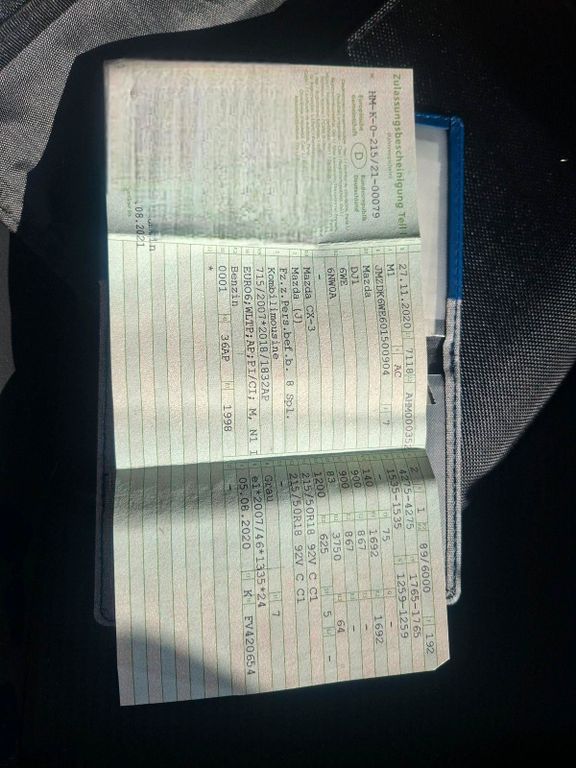 Zulassungsbescheinigung Teil
HM-K-0-215/21-00079
Europäische
Gemeinschaft
D
Bundesrepublik
Deutschland
.08.2021
27.11.2020 7118 AHM000352
M1 AC
JMZDK6WE601500904 7
Mazda
DJ1
6WE
6NW0A
-
Mazda CX-3
Mazda (J)
Fz.z.Pers.bef.b. 8 Spl.
Kombilimousine
715/2007*2018/1832AP
EURO6;WLTP;AP;PI/CI; M, N1 I
Benzin
0001 36AP 1998
*
2 1 89/6000 192
4275-4275 1765-1765
1535-1535 1259-1259
- 75 -
140 1692 1692
900 867 -
900 867 -
83 3750 64
1200 625 5 -
215/50R18 92V C C1
215/50R18 92V C C1
-
Grau 7
e1*2007/46*1335*24
05.08.2020 K FV420654
-